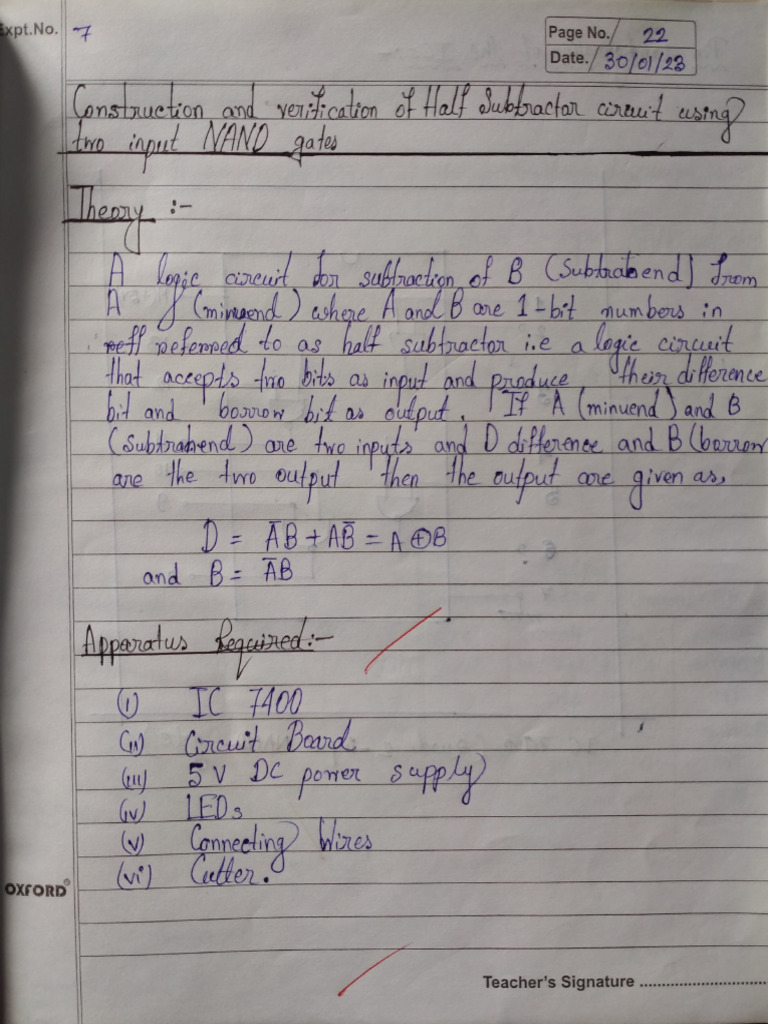 Expt.No. 7
Page No. 22
Date. 30/01/23
Construction and verification of Half Subtractor circuit using
two input NAND gates
Theory :-
A logic circuit for subtraction of B (Subtrahend) from
A (minuend) where A and B are 1-bit numbers in
referred to as half subtractor i.e a logic circuit
that accepts two bits as input and produce their difference
bit and borrow bit as output. If A (minuend) and B
(subtrahend) are two inputs and D difference and B (borrow
are the two output then the output are given as,
D = A̅B + AB̅ = A ⊕ B
and B = A̅B
Apparatus Required:-
(i) IC 7400
(ii) Circuit Board
(iii) 5V DC power supply
(iv) LEDs
(v) Connecting Wires
(vi) Cutter.
OXFORD®
Teacher's Signature ............................